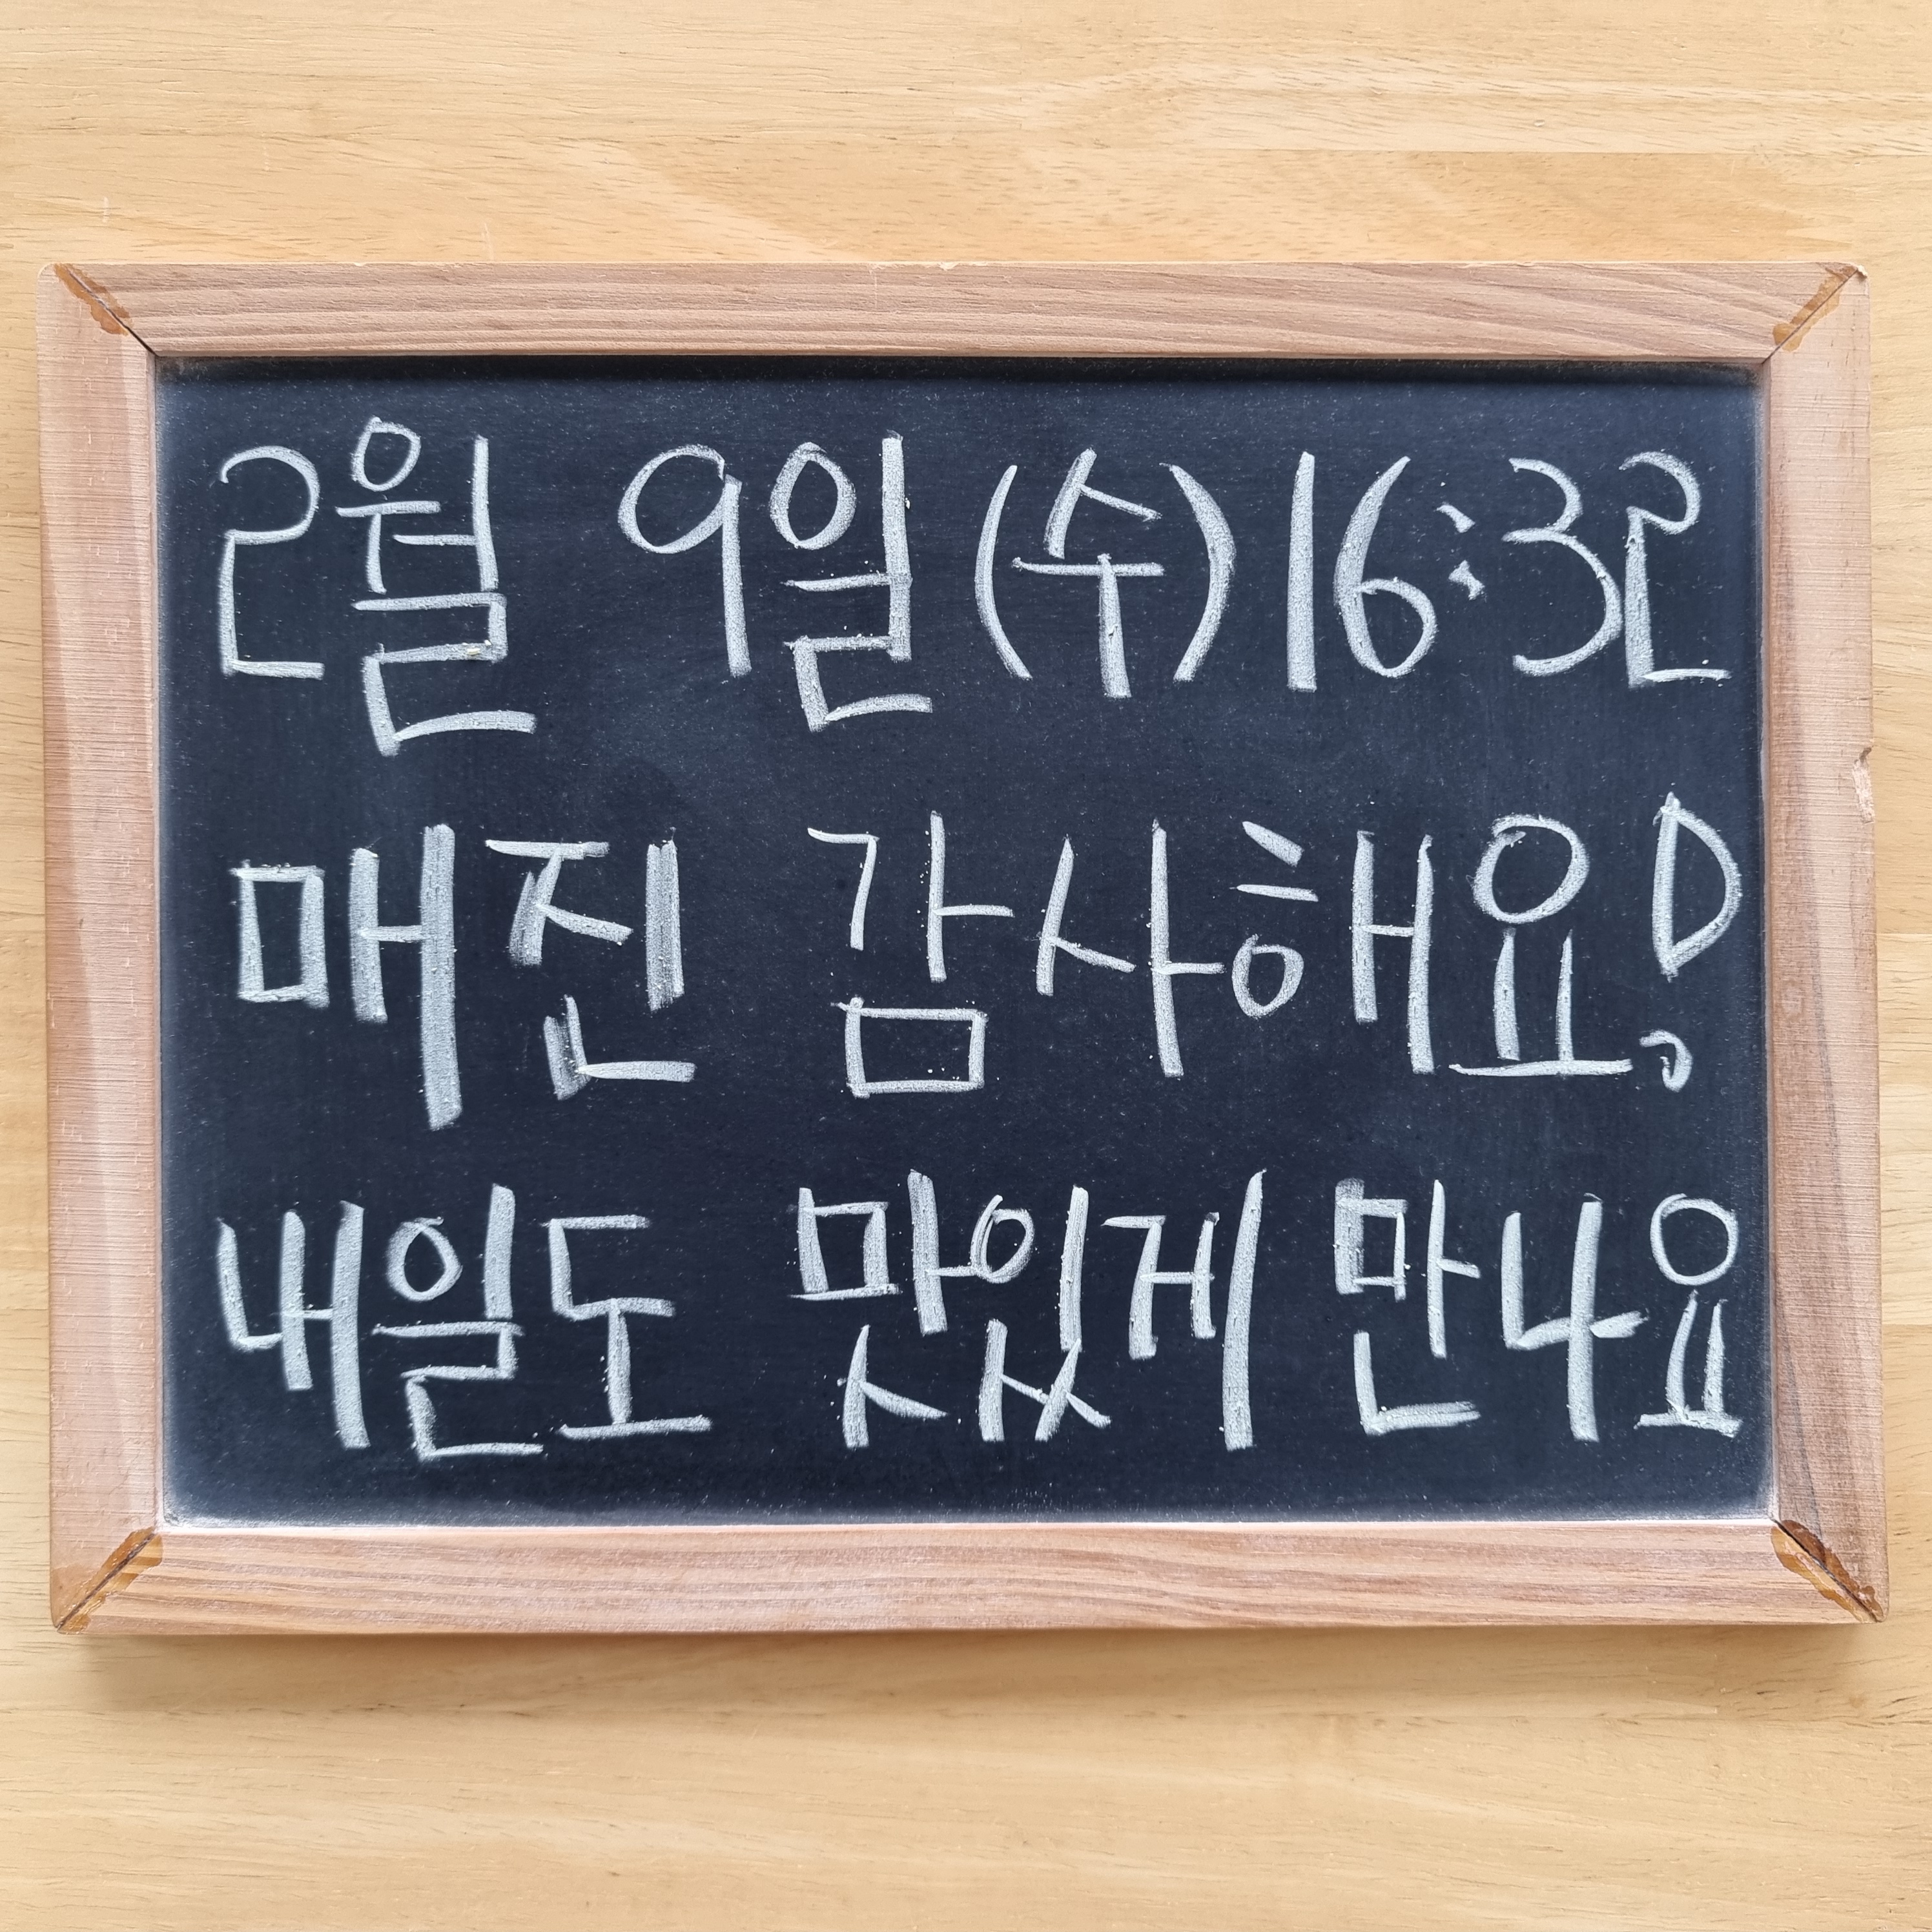 2월 9일(수)16:32
매진 감사해요!
내일도 맛있게 만나요